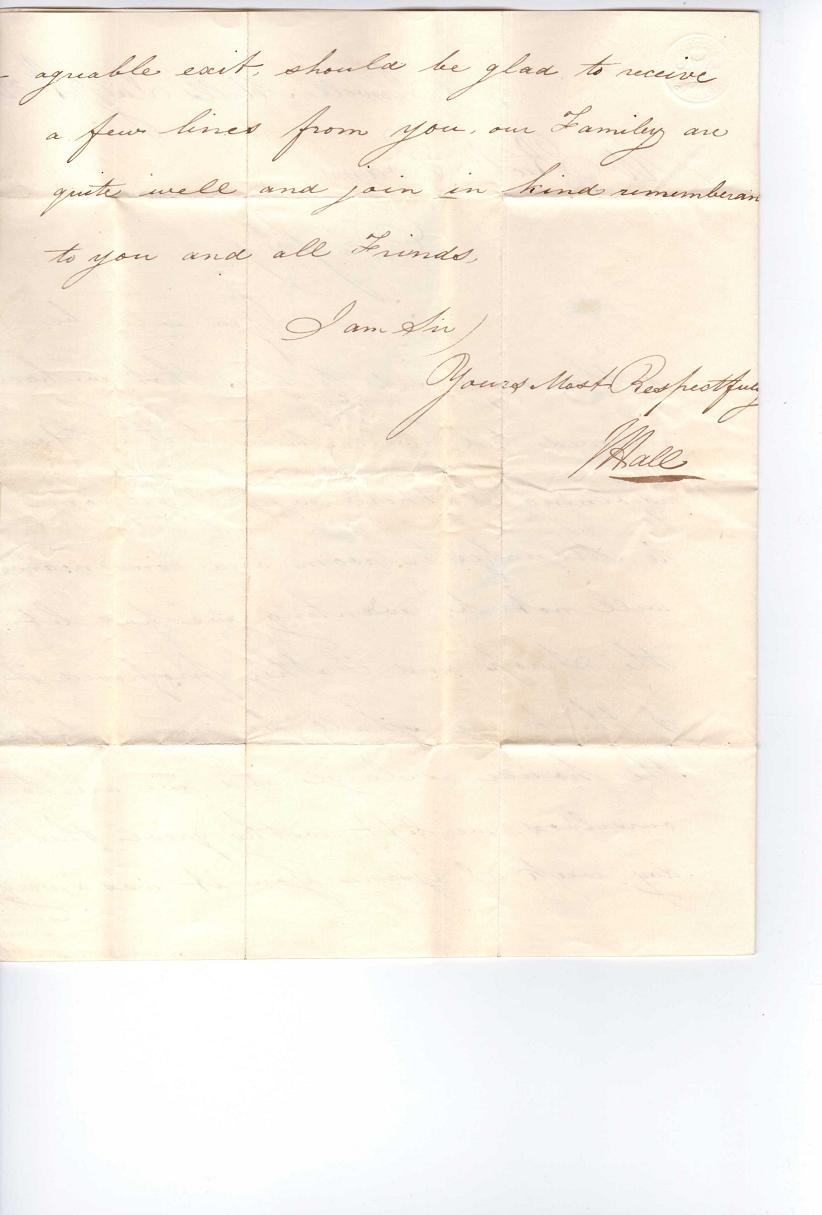 - agreable exit, should be glad to receive
a few lines from you, our Familey are
quite well and join in kind rememberan
to you and all Frinds,
I am Sir
Yours Most Respectfully
Hall